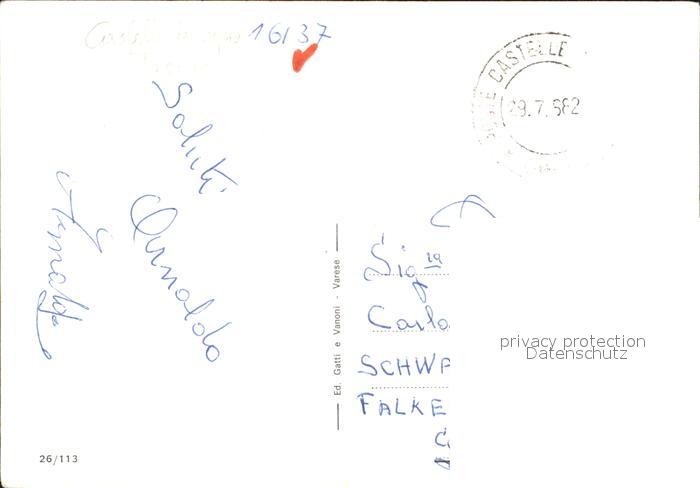 16137
CASTELLE
29.7.682
Saluti
Arnaldo
Ed. Gatti e Vanoni - Varese
Sig.ra
Carlo
SCHWA
FALKE
privacy protection
Datenschutz
26/113